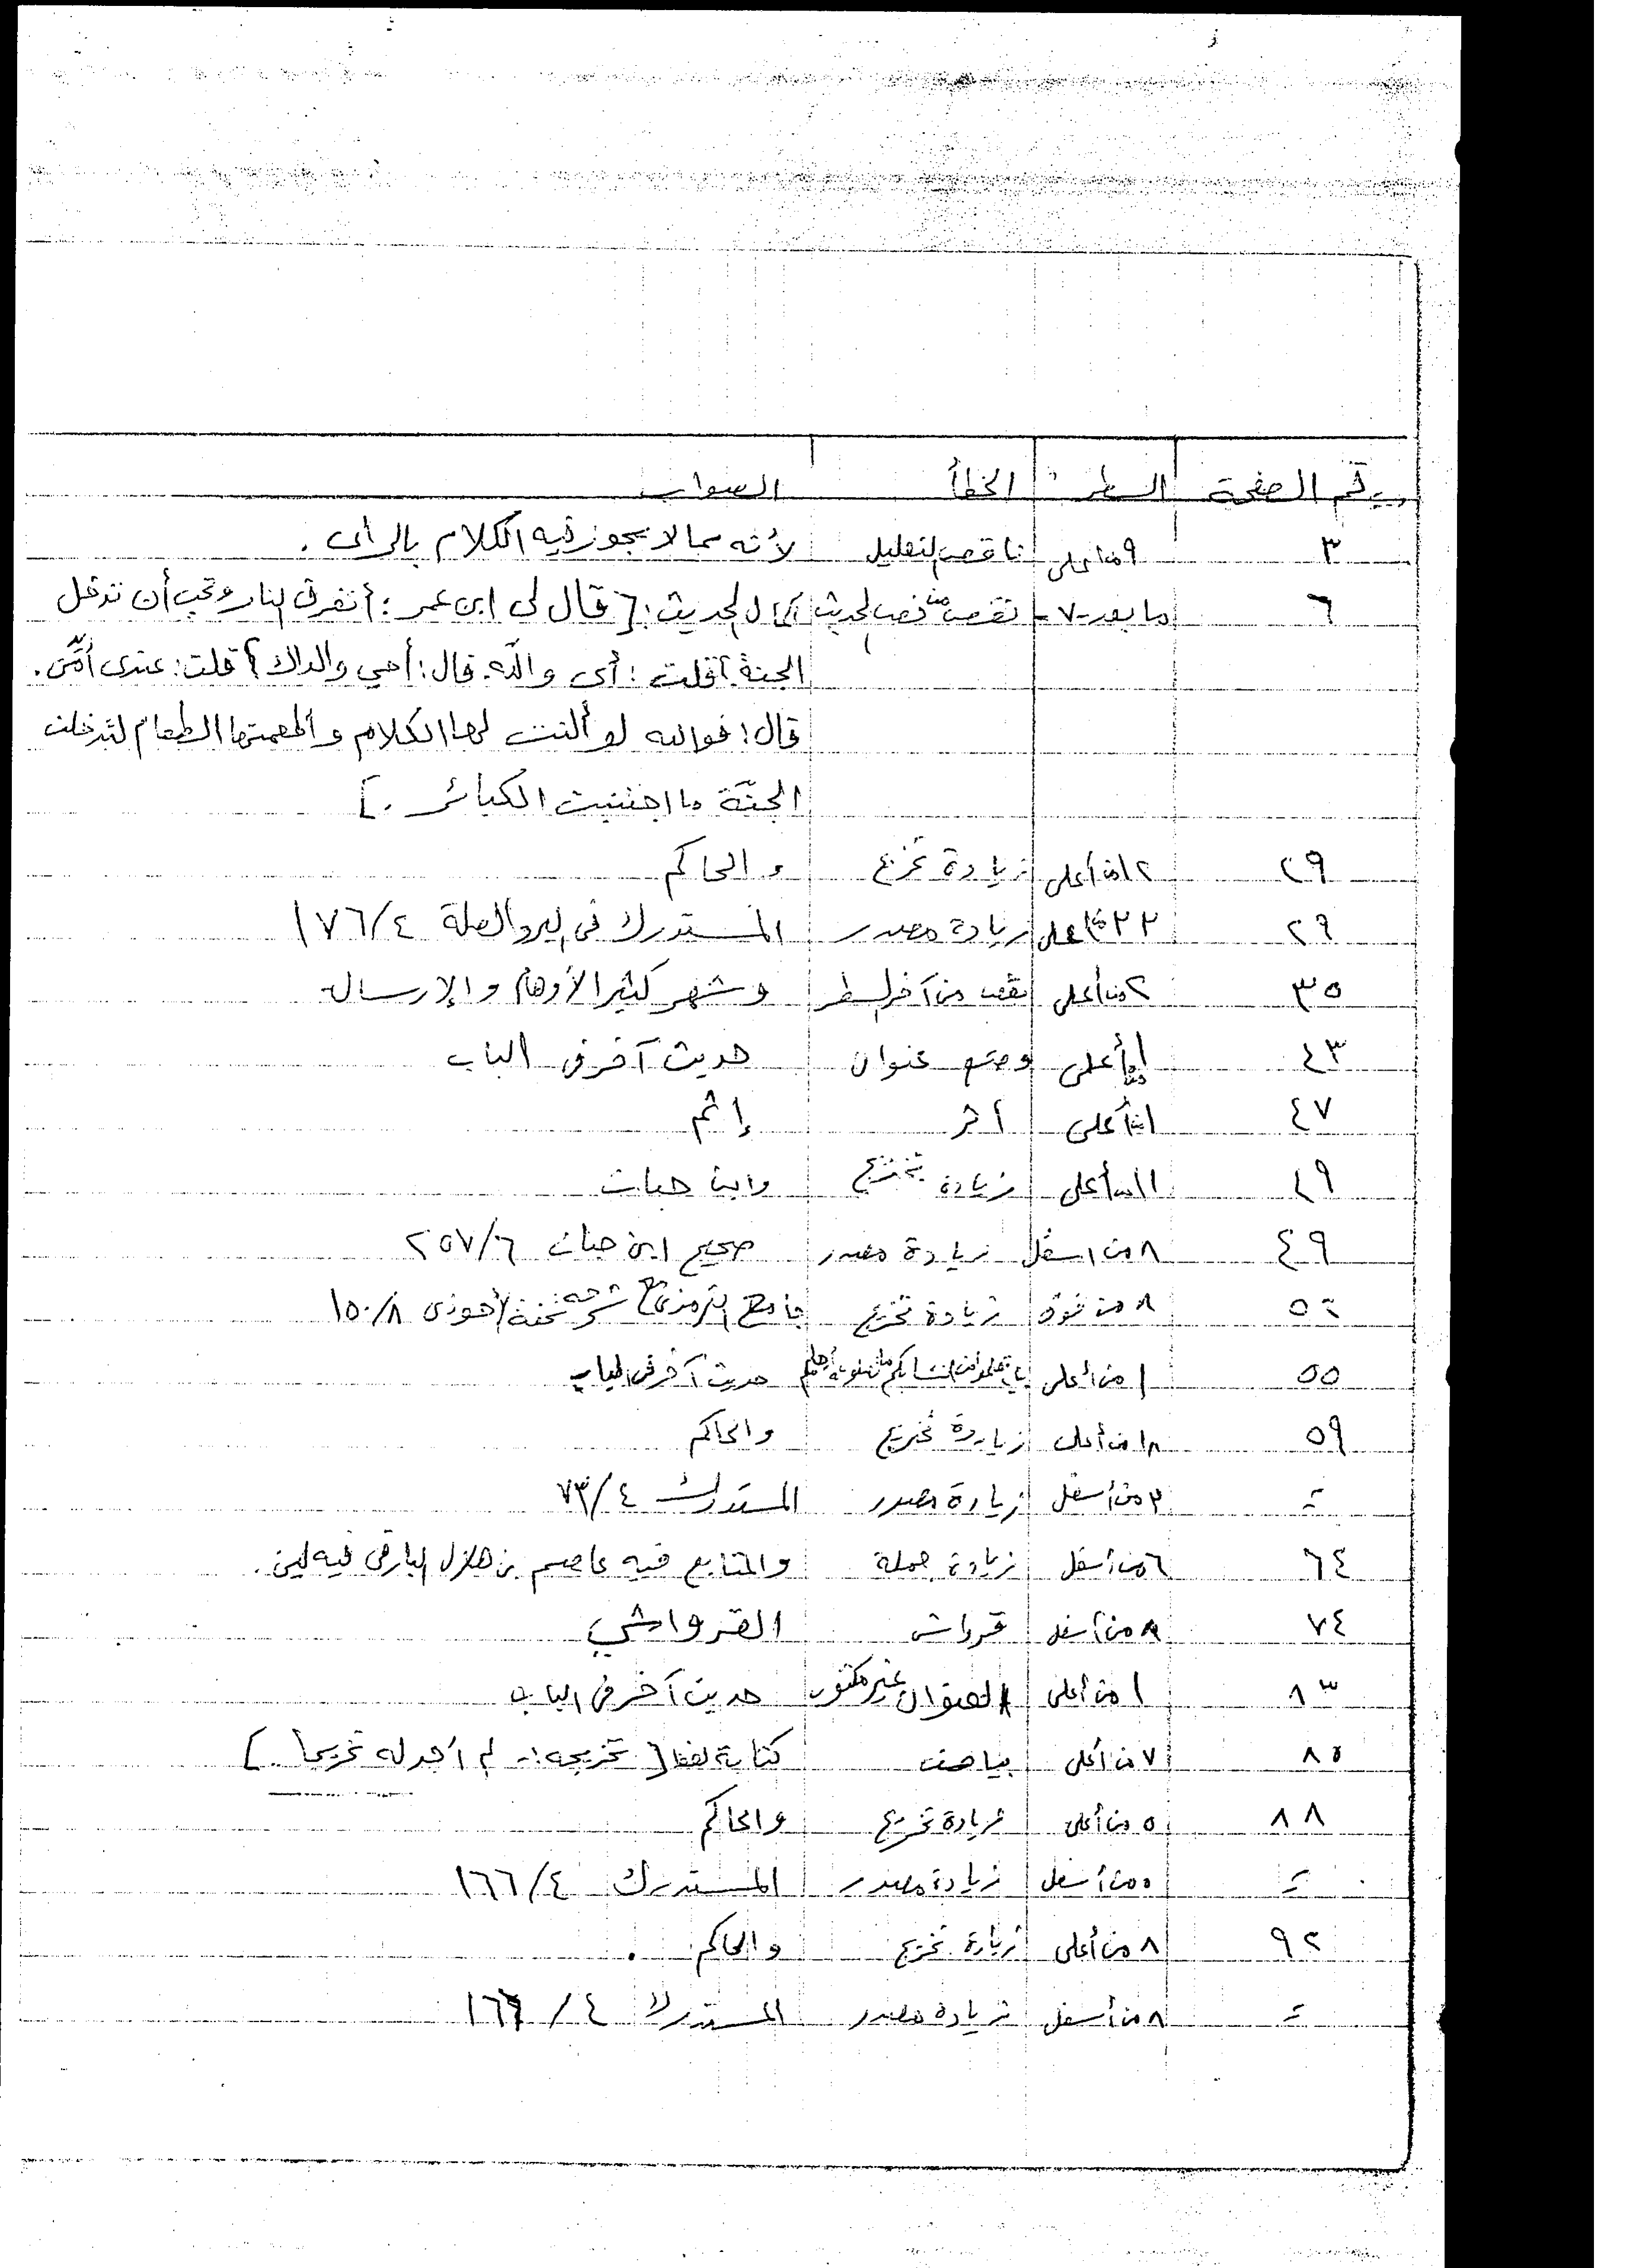 رقم الصفحة السطر الخطأ الصواب
٣ ٩ من أعلى ناقص التعليل لأنه مما لا يجوز فيه الكلام بالرأى .
٦ ما بعد ٧- نقص من نص الحديث إكمال الحديث : [ قال لى ابن عمر : أتفرق النار وتحب أن تدخل
الجنة ؟ قلت : أى والله . قال : أحي والداك ؟ قلت : عندى أمّى .
قال : فوالله لو ألنت لها الكلام وأطعمتها الطعام لتدخلن
الجنّة ما اجتنبت الكبائر . ]
٢٩ ١٢ من أعلى زيادة تخريج والحاكم
٢٩ ٢٢ من أعلى زيادة مصدر المستدرك فى البر والصلة ١٧٦/٤
٣٥ ٢ من أعلى نقص من آخر السطر وشهر كثير الأوهام والإرسال
٤٣ أعلى وضع عنوان حديث آخر فى الباب
٤٧ ١ من أعلى أثر إثم
٤٩ ١١ من أعلى زيادة تخريج وابن حبان
٤٩ ٨ من اسفل زيادة مصدر صحيح ابن حبان ٢٥٧/٦
٥٢ ٨ من فوق زيادة تخريج جامع الترمذى مع شرحه تحفة الأحوذى ١٥٠/٨
٥٥ ١ من أعلى حديث آخر فى الباب
٥٩ ١٨ من أعلى زيادة تخريج والحاكم
= ٣ من أسفل زيادة مصدر المستدرك ٧٣/٤
٦٤ ٦ من أسفل زيادة جملة والمتابع فيه عاصم بن هلال البارقى فيه لين .
٧٤ ٩ من أسفل قرواش القرواشي
٨٣ ١ من أعلى العنوان غير مكتوب حديث آخر فى الباب
٨٥ ٧ من أعلى بياض كتابة لفظ [ تخريجه :- لم أجد له تخريجا . ]
٨٨ ٥ من أعلى زيادة تخريج والحاكم
= ٥ من أسفل زيادة مصدر المستدرك ١٦٦/٤
٩٢ ٨ من أعلى زيادة تخريج والحاكم .
= ٨ من أسفل زيادة مصدر المستدرك ١٦٦/٤